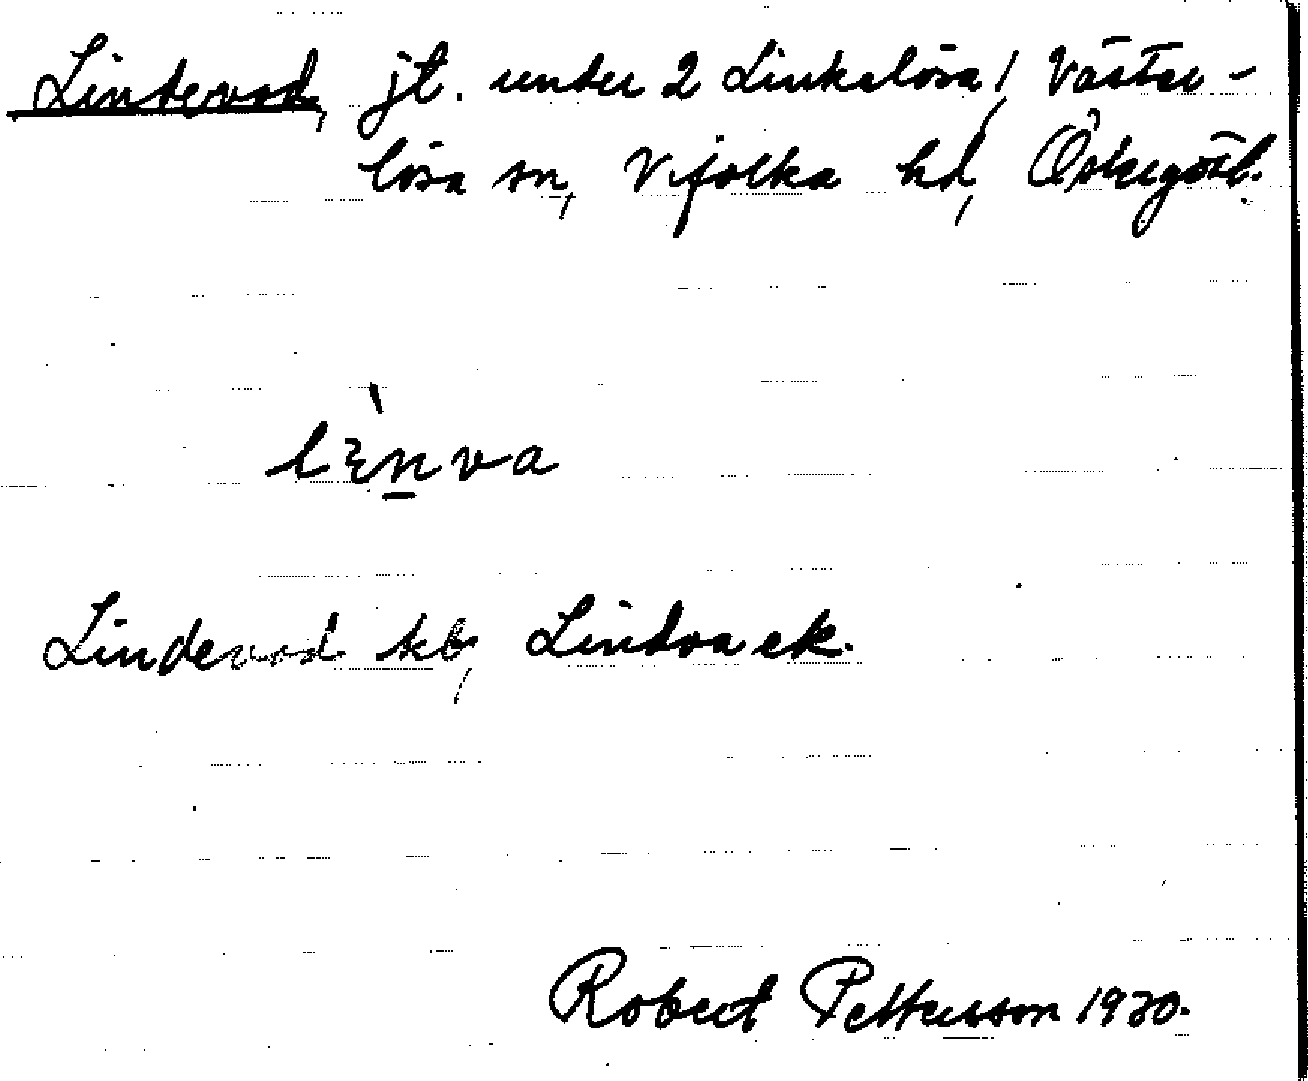 Lindevad, jt. under 2 Linkelösa, Väster-
lösa sn, Vifolka hd, Östergötl.
lɛ̀nva
Lindevad kb, Lindva ek.
Robert Pettersson 1930.